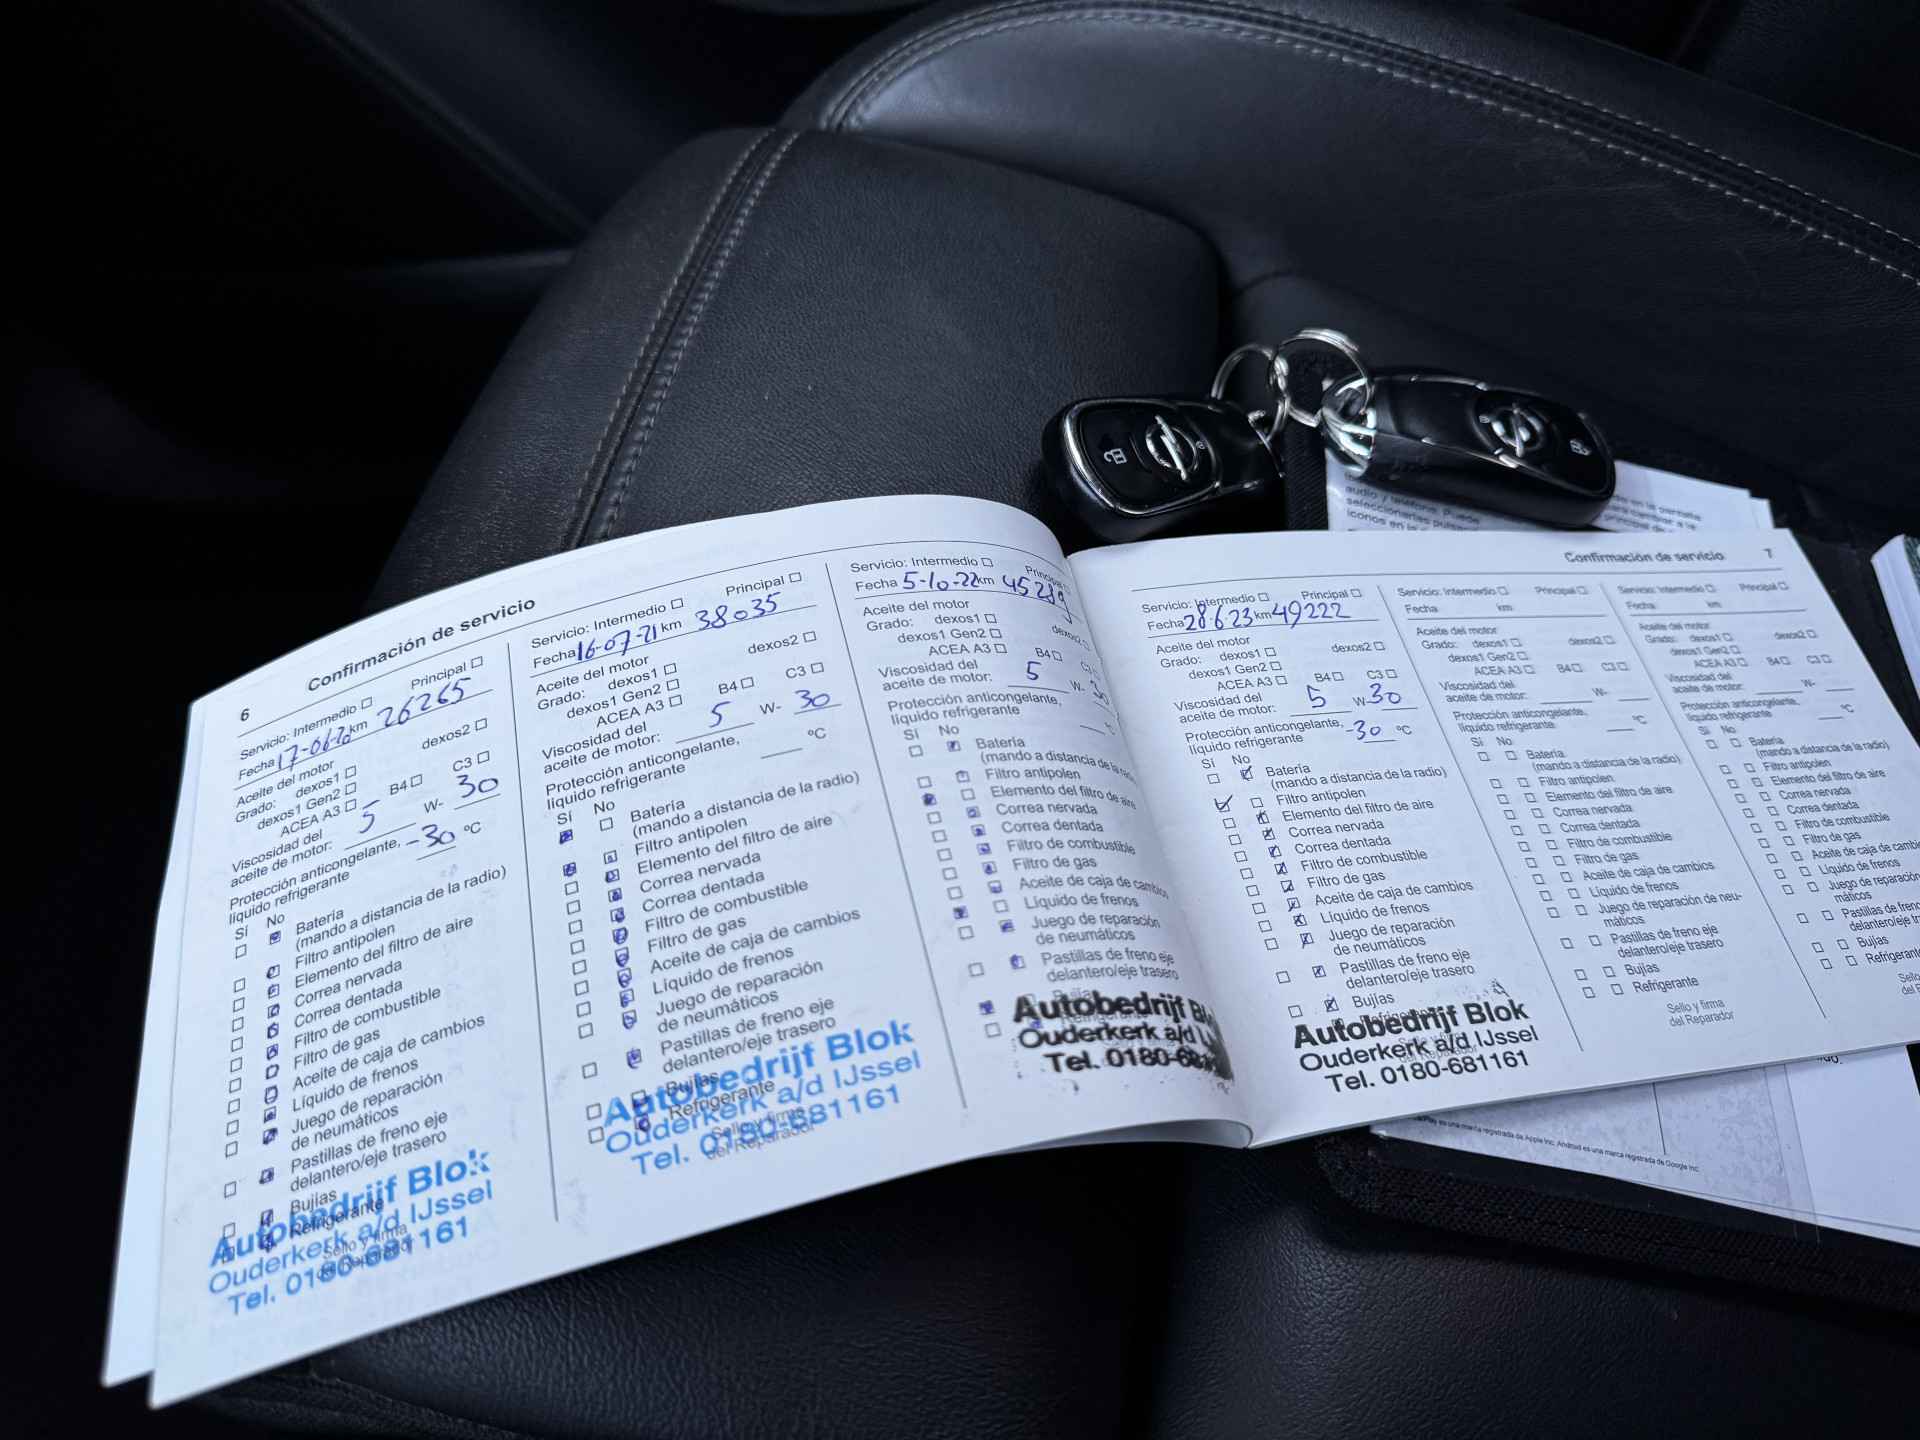 6
Confirmación de servicio
Servicio: Intermedio Principal
Fecha 17-06-20 km 26265
Aceite del motor
Grado: dexos1 dexos2
dexos1 Gen2
ACEA A3 B4 C3
Viscosidad del
aceite de motor: 5 W- 30
Protección anticongelante, -30 °C
líquido refrigerante
Sí No
Batería
(mando a distancia de la radio)
Filtro antipolen
Elemento del filtro de aire
Correa nervada
Correa dentada
Filtro de combustible
Filtro de gas
Aceite de caja de cambios
Líquido de frenos
Juego de reparación
de neumáticos
Pastillas de freno eje
delantero/eje trasero
Bujías
Refrigerante
Sello y firma
del Reparador
Autobedrijf Blok
Ouderkerk a/d IJssel
Tel. 0180-681161
Servicio: Intermedio Principal
Fecha 16-07-21 km 38035
Aceite del motor
Grado: dexos1 dexos2
dexos1 Gen2
ACEA A3 B4 C3
Viscosidad del
aceite de motor: 5 W- 30
Protección anticongelante,
líquido refrigerante °C
Sí No
Batería
(mando a distancia de la radio)
Filtro antipolen
Elemento del filtro de aire
Correa nervada
Correa dentada
Filtro de combustible
Filtro de gas
Aceite de caja de cambios
Líquido de frenos
Juego de reparación
de neumáticos
Pastillas de freno eje
delantero/eje trasero
Bujías
Refrigerante
Sello y firma
del Reparador
Autobedrijf Blok
Ouderkerk a/d IJssel
Tel. 0180-681161
Servicio: Intermedio Principal
Fecha 5-10-22 km 45289
Aceite del motor
Grado: dexos1 dexos2
dexos1 Gen2
ACEA A3 B4
Viscosidad del
aceite de motor: 5 W- 30
Protección anticongelante,
líquido refrigerante °C
Sí No
Batería
(mando a distancia de la
Filtro antipolen
Elemento del filtro de aire
Correa nervada
Correa dentada
Filtro de combustible
Filtro de gas
Aceite de caja de cambios
Líquido de frenos
Juego de reparación
de neumáticos
Pastillas de freno eje
delantero/eje trasero
Autobedrijf
Ouderkerk a/d
Tel. 0180-681
Confirmación de servicio 7
Servicio: Intermedio Principal
Fecha 28-6-23 km 49222
Aceite del motor
Grado: dexos1 dexos2
dexos1 Gen2
ACEA A3 B4 C3
Viscosidad del
aceite de motor: 5 W 30
Protección anticongelante,
líquido refrigerante -30 °C
Sí No
Batería
(mando a distancia de la radio)
Filtro antipolen
Elemento del filtro de aire
Correa nervada
Correa dentada
Filtro de combustible
Filtro de gas
Aceite de caja de cambios
Líquido de frenos
Juego de reparación
de neumáticos
Pastillas de freno eje
delantero/eje trasero
Bujías
Autobedrijf Blok
Ouderkerk a/d IJssel
Tel. 0180-681161
Servicio: Intermedio Principal
Fecha km
Aceite del motor
Grado: dexos1 dexos2
dexos1 Gen2
ACEA A3 B4 C3
Viscosidad del
aceite de motor: W-
Protección anticongelante,
líquido refrigerante °C
Sí No
Batería
(mando a distancia de la radio)
Filtro antipolen
Elemento del filtro de aire
Correa nervada
Correa dentada
Filtro de combustible
Filtro de gas
Aceite de caja de cambios
Líquido de frenos
Juego de reparación de neu-
máticos
Pastillas de freno eje
delantero/eje trasero
Bujías
Refrigerante
Sello y firma
del Reparador
Servicio: Intermedio Principal
Fecha km
Aceite del motor
Grado: dexos1 dexos2
dexos1 Gen2
ACEA A3 B4 C3
Viscosidad del
aceite de motor: W-
Protección anticongelante,
líquido refrigerante °C
Sí No
Batería
(mando a distancia de la radio)
Filtro antipolen
Elemento del filtro de aire
Correa nervada
Correa dentada
Filtro de combustible
Filtro de gas
Aceite de caja de
Líquido de frenos
Juego de reparación
máticos
Pastillas de
delantero/eje
Bujías
Sello
del
audio y teléfono. Puede
Play es una marca registrada de Apple Inc. Android es una marca registrada de Google Inc.